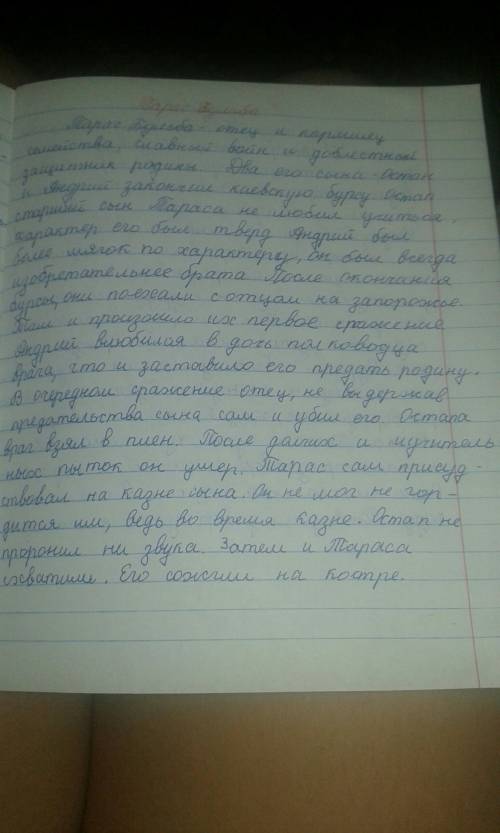 Тарас Бульба
Тарас Бульба- отец и кормилец
семейства, славный воин и доблестный
защитник родины. Два его сына Остап
и Андрий закончили киевскую бурсу Остап
старший сын Тараса не любил учиться.
характер его был тверд Андрий был
более мягок по характеру, он был всегда
изобретательнее брата После окончания
бурсы, они поехали с отцом на запорожье.
Там и произошло их первое сражение
Андрий влюбился в дочь полководца
врага, что и заставило его предать родину.
В очередном сражение отец, не выдержав
предательства сына сам и убил его. Остапа
враг взял в плен. После долгих и мучитель
ных пыток он умер. Тарас сам присуд-
ствовал на казне сына. Он не мог не гор-
дится им, ведь во время казне. Остап не
проронил ни звука. Затем и Тараса
схватили. Его сожгли на костре.